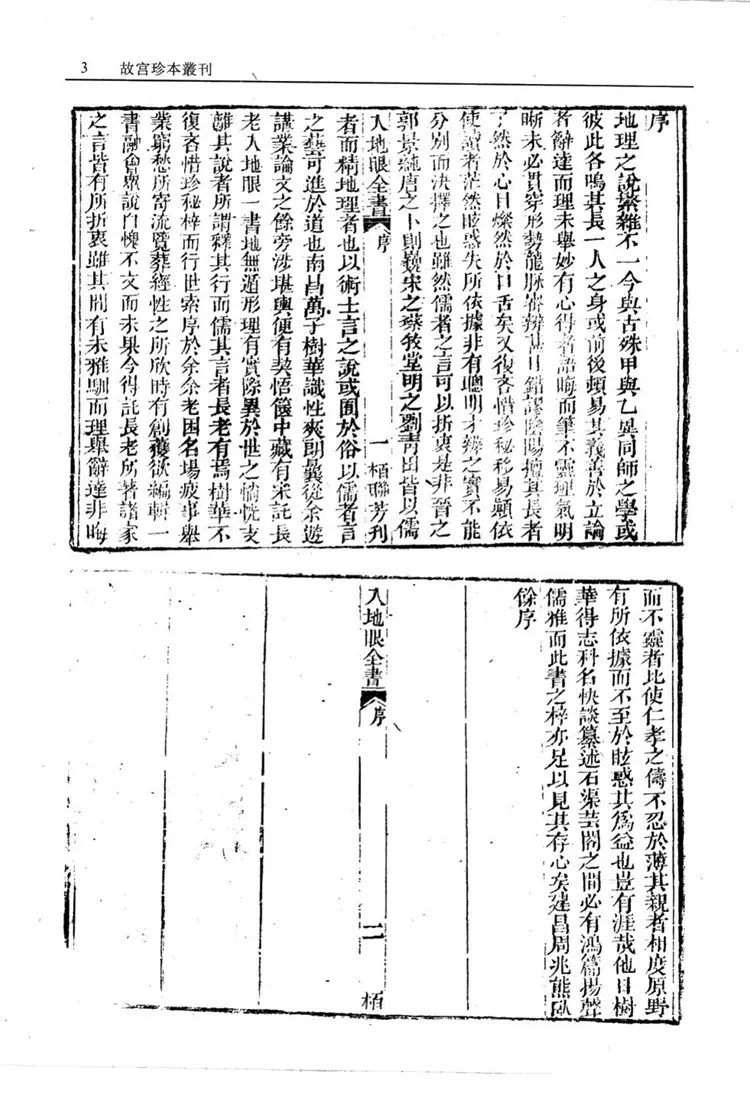 3 故宮珍本叢刊
序
地理之說繁雜不一今與古殊甲與乙異同師之學或
彼此各鳴其長一人之身或前後頓易其義善於立論
者辭達而理未舉妙有心得者語晦而筆不靈理氣明
晰未必貫穿形勢龍脉審辨甚且錯謬陰陽擅其長者
了然於心目燦然於口舌矣又復吝惜珍秘移易顛依
使讀者茫然眩惑失所依據非有聰明才辨之實不能
分別而決擇之也雖然儒者之言可以折衷是非晉之
郭景純唐之卜則巍宋之蔡牧堂明之劉青田皆以儒
入地眼全書 序 一 栢聯芳刊
者而精地理者也以術士言之說或囿於俗以儒者言
之藝可進於道也南昌萬子樹華識性爽朗曩從余遊
講業論文之餘旁涉堪輿便有契悟篋中藏有宋託長
老入地眼一書地無遁形理有實際異於世之惝恍支
離其說者所謂釋其行而儒其言者長老有焉樹華不
復吝惜珍秘梓而行世索序於余余老困名場疲事舉
業窮愁所寄流覽葬經性之所欣時有創獲欲編輯一
書融會眾說自愧不文而未果今得託長老所著諸家
之言皆有所折衷雖其間有未雅馴而理舉辭達非晦
而不靈者比使仁孝之儔不忍於薄其親者相度原野
有所依據而不至於眩惑其爲益也豈有涯哉他日樹
華得志科名快談纂述石渠芸閣之間必有鴻篇揚聲
儒雅而此書之梓亦足以見其存心矣建昌周兆熊臥
餘序
入地眼全書 序 二 栢